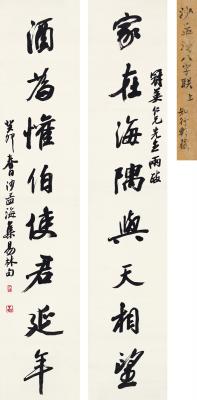 沙孟海八字聯 上
仁兄先生兩政
家在海隅與天相望
酒為懽伯使君延年
癸卯春日沙孟海集易林句